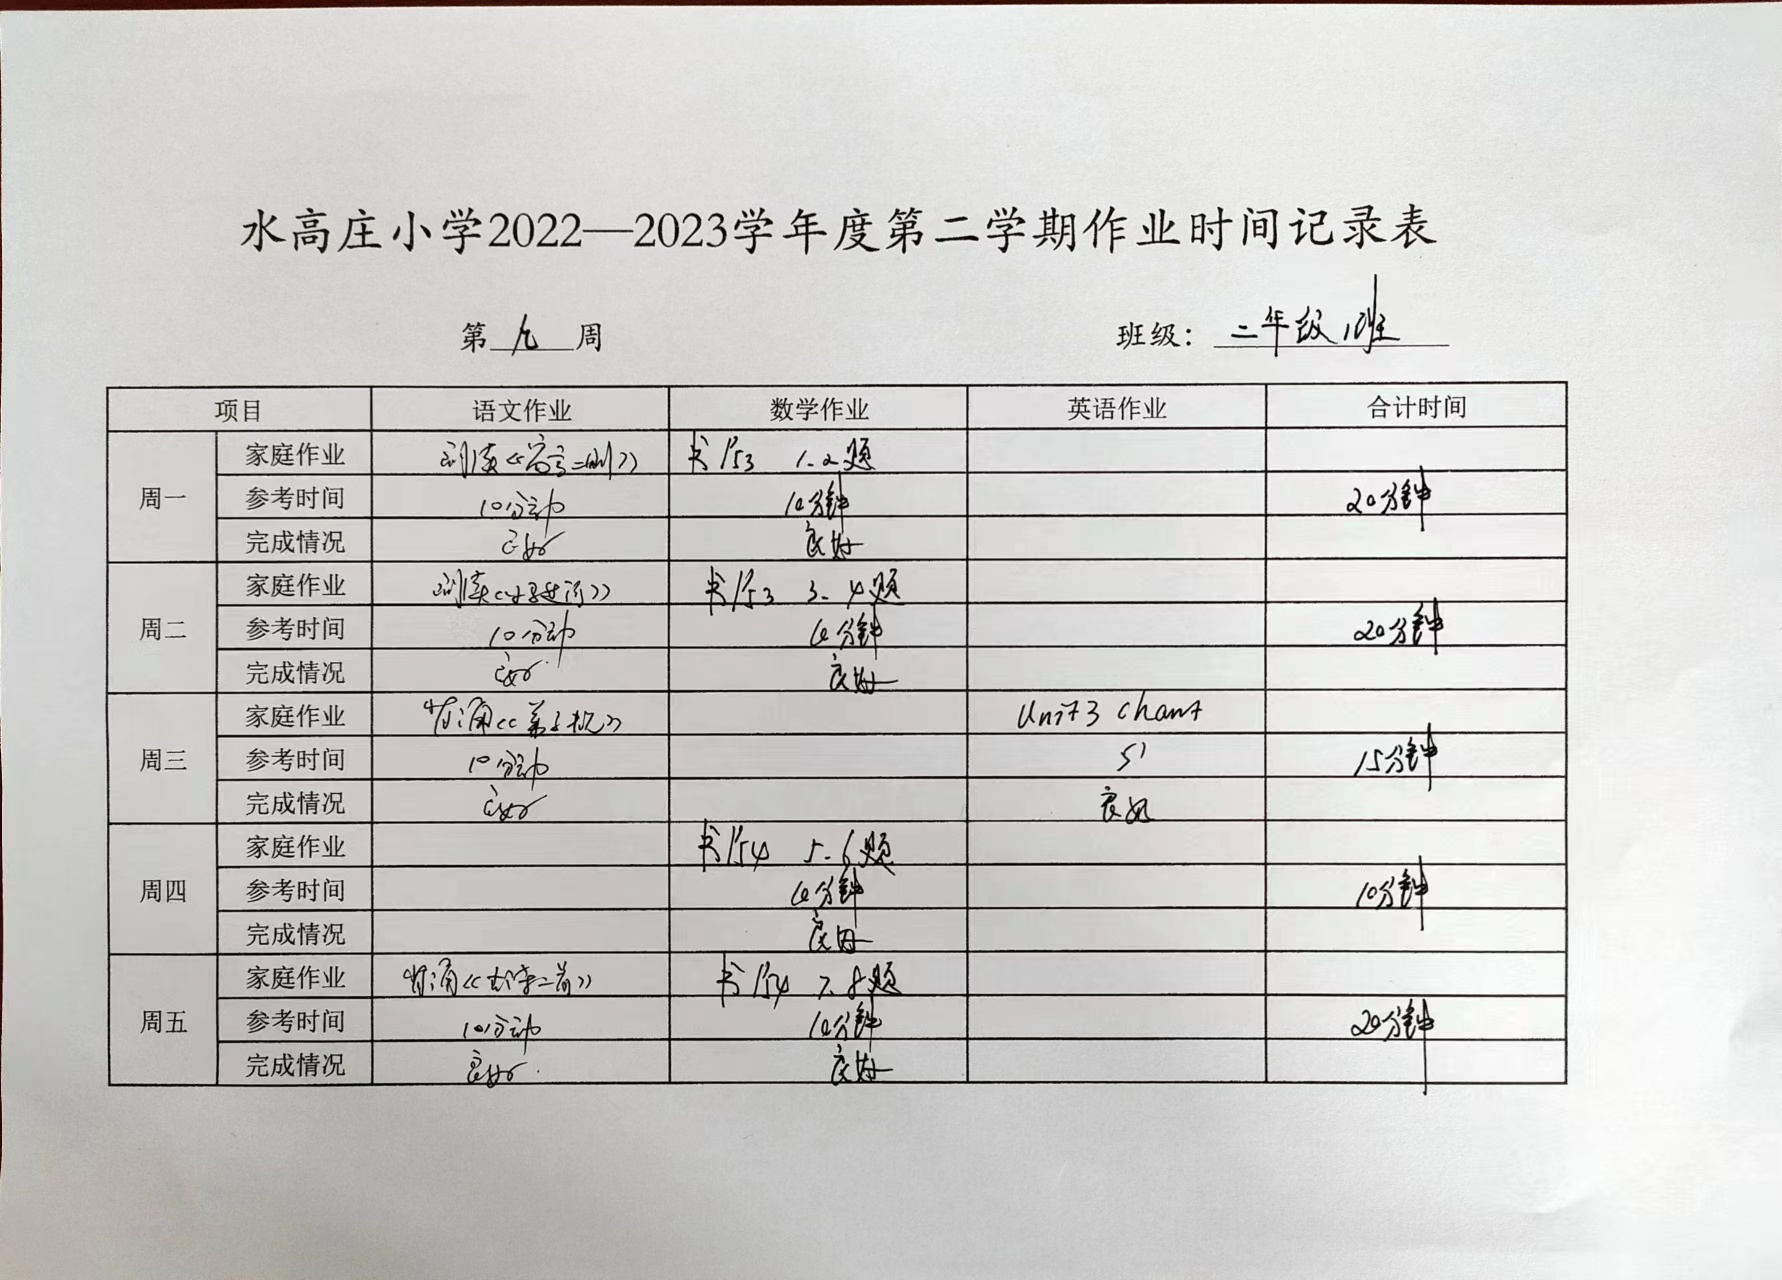 水高庄小学2022—2023学年度第二学期作业时间记录表
第 九 周 班级： 二年级1班
项目 语文作业 数学作业 英语作业 合计时间
周一 家庭作业 朗读《寓言二则》 书P53 1.2题
参考时间 10分钟 10分钟 20分钟
完成情况 良好 良好
周二 家庭作业 朗读 书P53 3.4题
参考时间 10分钟 10分钟 20分钟
完成情况 良好 良好
周三 家庭作业 背诵《弟子规》 Unit3 chant
参考时间 10分钟 5' 15分钟
完成情况 良好 良好
周四 家庭作业 书P54 5.6题
参考时间 10分钟 10分钟
完成情况 良好
周五 家庭作业 背诵《古诗二首》 书P54 7.8题
参考时间 10分钟 10分钟 20分钟
完成情况 良好 良好